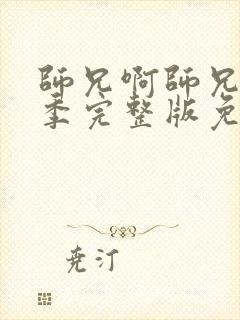 師兄啊師兄
季完整版免
尭汀